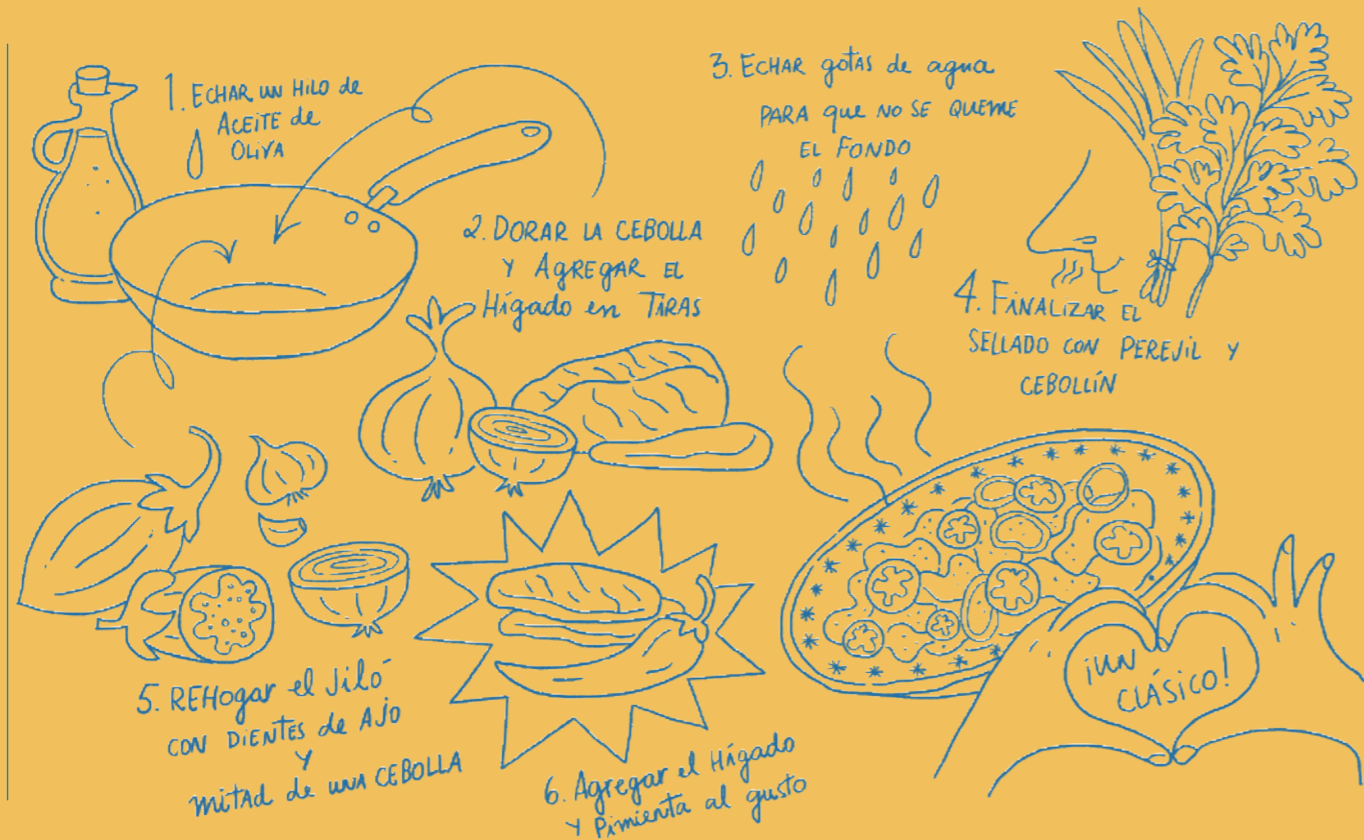 1. ECHAR UN HILO de
ACEITE de
OLIVA
2. DORAR LA CEBOLLA
Y AgREgAR EL
Hígado en TIRAS
3. ECHAR gotas de agua
PARA que NO SE QUEME
EL FONDO
4. FINALIZAR EL
SELLADO CON PEREJIL Y
CEBOLLÍN
5. REHogar el Jiló
CON DIENTES de AJO
Y
mitad de UNA CEBOLLA
6. Agregar el Hígado
Y Pimienta al gusto
¡UN
CLÁSICO!